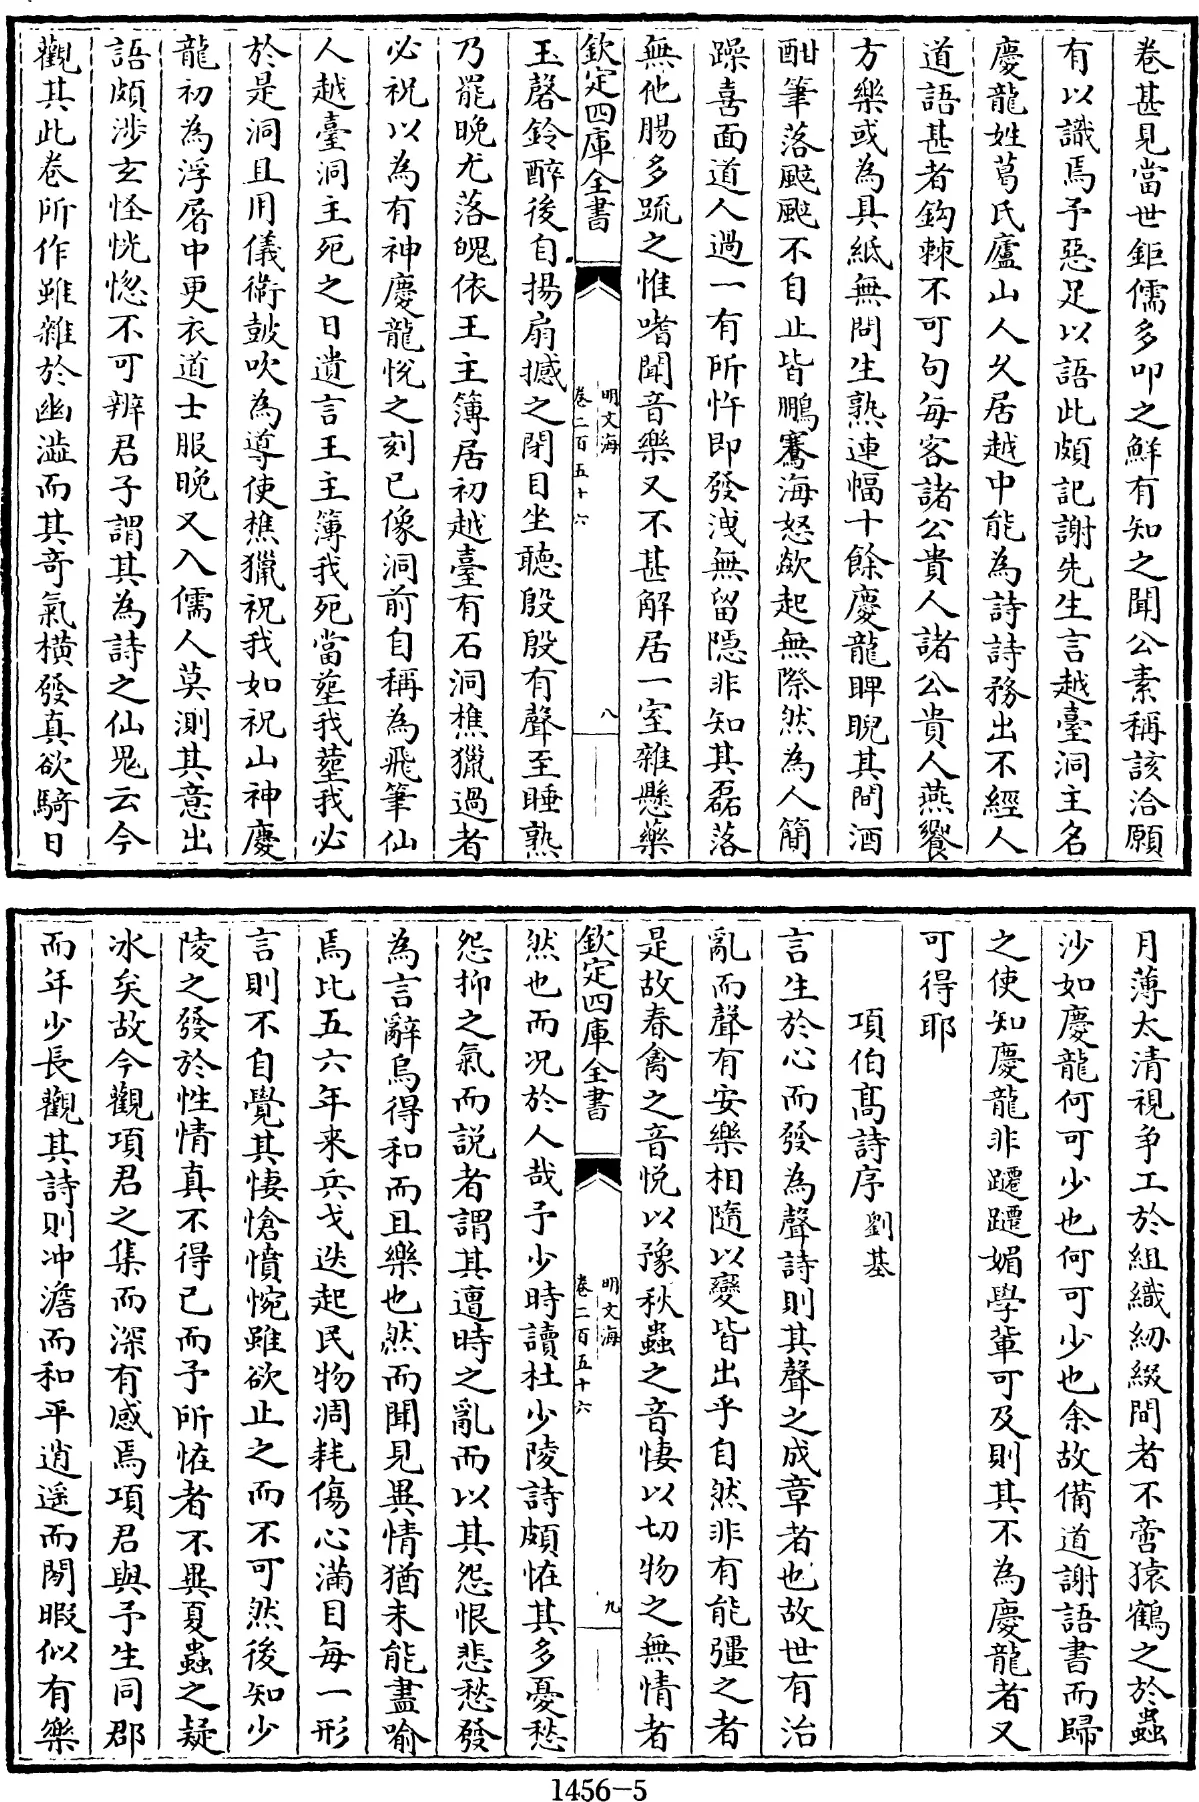 卷甚見當世鉅儒多叩之鮮有知之聞公素稱該洽願
有以識焉予惡足以語此頗記謝先生言越臺洞主名
慶龍姓葛氏廬山人久居越中能為詩詩務出不經人
道語甚者鈎棘不可句每客諸公貴人諸公貴人燕饗
方樂或為具紙無問生熟連幅十餘慶龍睥睨其間酒
酣筆落颼颼不自止皆鵬騫海怒欻起無際然為人簡
躁喜面道人過一有所忤即發洩無留隱非知其磊落
無他腸多疏之惟嗜聞音樂又不甚解居一室雜懸藥
欽定四庫全書
明文海
卷二百五十六
八
玉磬鈴醉後自揚扇撼之閉目坐聽殷殷有聲至睡熟
乃罷晚尤落魄依王主簿居初越臺有石洞樵獵過者
必祝以為有神慶龍悅之刻已像洞前自稱為飛筆仙
人越臺洞主死之日遺言王主簿我死當塟我塟我必
於是洞且用儀衞鼓吹為導使樵獵祝我如祝山神慶
龍初為浮屠中更衣道士服晚又入儒人莫測其意出
語頗涉玄怪恍惚不可辨君子謂其為詩之仙鬼云今
觀其此卷所作雖雜於幽澁而其竒氣橫發真欲騎日
月薄太清視爭工於組織紉綴間者不啻猿鶴之於蟲
沙如慶龍何可少也何可少也余故備道謝語書而歸
之使知慶龍非躚躚媚學輩可及則其不為慶龍者又
可得耶
項伯髙詩序 劉基
言生於心而發為聲詩則其聲之成章者也故世有治
亂而聲有安樂相隨以變皆出乎自然非有能彊之者
是故春禽之音悦以豫秋蟲之音悽以切物之無情者
欽定四庫全書
明文海
卷二百五十六
九
然也而况於人哉予少時讀杜少陵詩頗恠其多憂愁
怨抑之氣而説者謂其遭時之亂而以其怨恨悲愁發
為言辭烏得和而且樂也然而聞見異情猶未能盡喻
焉比五六年来兵戈迭起民物凋耗傷心滿目每一形
言則不自覺其悽愴憤惋雖欲止之而不可然後知少
陵之發於性情真不得已而予所恠者不異夏蟲之疑
冰矣故今觀項君之集而深有感焉項君與予生同郡
而年少長觀其詩則冲澹而和平逍遥而閒暇似有樂
1456-5